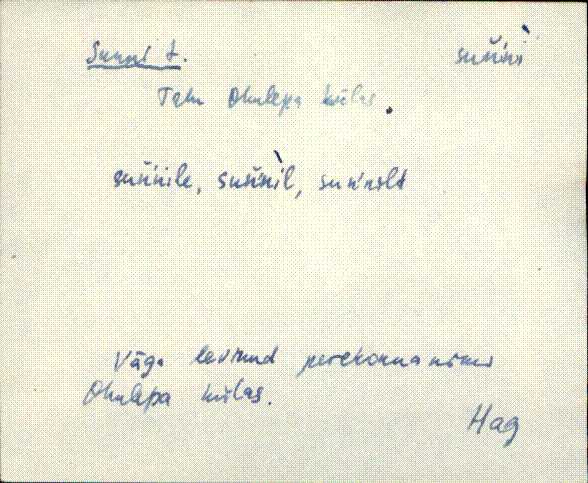 Sunni t. sun̆ńi
Talu Ohulepa külas.
sun̆ńile, sun̆ńil, sun̆ńilt
Väga levinud perekonnanimi
Ohulepa külas.
Hag